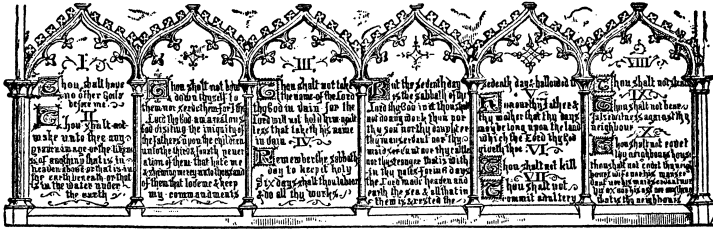 I
Thou shalt have
no other Gods
before me
II
Thou shalt not
make unto thee any
graven image or the likeness
of anything that is in
heaven above or that is in
the earth beneath or that
is in the water under
the earth
Thou shalt not bow
down thyself to
them nor serve them for I the
Lord thy God am a jealous
God visiting the iniquity of
the fathers upon the children
unto the third & fourth gener
ation of them that hate me
& shewing mercy unto thousands
of them that love me & keep
my commandments
III
Thou shalt not take
the name of the Lord
thy God in vain for the
Lord will not hold him guilt
less that taketh his name
in vain IV
Remember the sabbath
day to keep it holy
Six days shalt thou labour
& do all thy works
But the seventh day
is the sabbath of the
Lord thy God in it thou shalt
not do any work thou nor
thy son nor thy daughter
thy manservant nor thy
maidservant nor thy cattle
nor thy stranger that is with
in thy gates for in 6 days
the Lord made heaven and
earth the sea & all that in
them is & rested the
seventh day & hallowed it
V
Honour thy father &
thy mother that thy days
may be long upon the land
which the Lord thy God
giveth thee VI
Thou shalt not kill
VII
Thou shalt not
commit adultery
VIII
Thou shalt not steal
IX
Thou shalt not bear
false witness against thy
neighbour
X
Thou shalt not covet
thy neighbours house
thou shalt not covet thy neigh
bours wife nor his
nor his
nor his ox nor his ass nor anything
that is thy neighbours